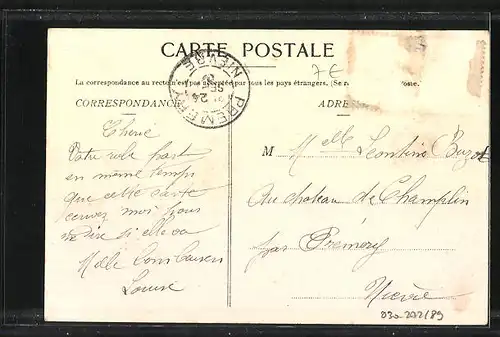 CARTE POSTALE
7E
La correspondance au recto n'est pas acceptée par tous les pays étrangers. (Se r Poste.)
CORRESPONDANCE
ADRE
PREMERY
NIEVRE
24
SE
Cherie
Votre robe part
en même temps
que cette carte
écrivez moi pour
me dire si elle va
Mlle
Louise
M elle Léontine
Au chateau de Champlin
par Premery
Nièvre
030-272/89